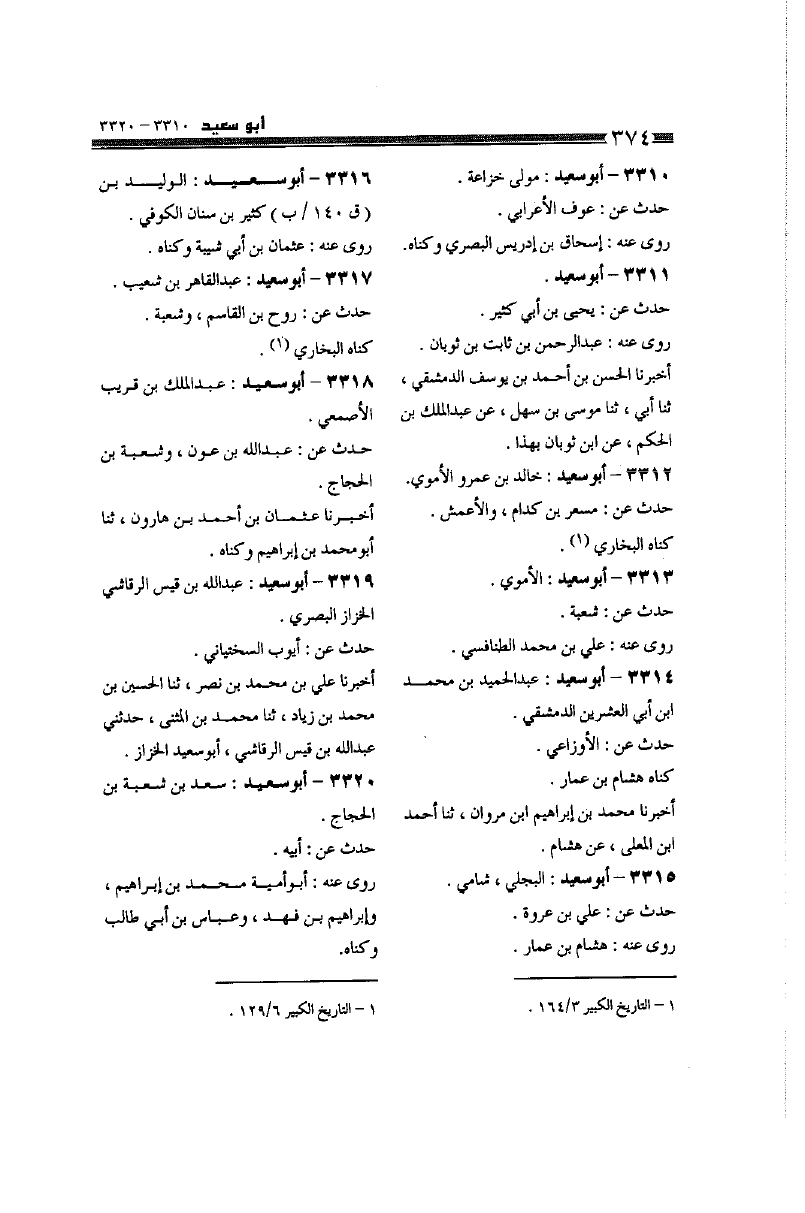 أبو سعيد ٣٣١٠ – ٣٣٢٠
٣٧٤
٣٣١٠ – أبوسعيد : مولى خزاعة .
حدث عن : عوف الأعرابي .
روى عنه : إسحاق بن إدريس البصري وكناه.
٣٣١١ – أبوسعيد .
حدث عن : يحيى بن أبي كثير .
روى عنه : عبدالرحمن بن ثابت بن ثوبان .
أخبرنا الحسن بن أحمد بن يوسف الدمشقي ،
ثنا أبي ، ثنا موسى بن سهل ، عن عبدالملك بن
الحكم ، عن ابن ثوبان بهذا .
٣٣١٢ – أبوسعيد : خالد بن عمرو الأموي.
حدث عن : مسعر بن كدام ، والأعمش .
كناه البخاري (١) .
٣٣١٣ – أبوسعيد : الأموي .
حدث عن : شعبة .
روى عنه : علي بن محمد الطنافسي .
٣٣١٤ – أبوسعيد : عبدالحميد بن محمد
ابن أبي العشرين الدمشقي .
حدث عن : الأوزاعي .
كناه هشام بن عمار .
أخبرنا محمد بن إبراهيم ابن مروان ، ثنا أحمد
ابن المعلى ، عن هشام .
٣٣١٥ – أبوسعيد : البجلي ، شامي .
حدث عن : علي بن عروة .
روى عنه : هشام بن عمار .
١ – التاريخ الكبير ١٦٤/٣ .
٣٣١٦ – أبوسعيد : الوليد بن
( ق ١٤٠ / ب ) كثير بن سنان الكوفي .
روى عنه : عثمان بن أبي شيبة وكناه .
٣٣١٧ – أبوسعيد : عبدالقاهر بن شعيب .
حدث عن : روح بن القاسم ، وشعبة .
كناه البخاري (١) .
٣٣١٨ – أبوسعيد : عبدالملك بن قريب
الأصمعي .
حدث عن : عبدالله بن عون ، وشعبة بن
الحجاج .
أخبرنا عثمان بن أحمد بن هارون ، ثنا
أبومحمد بن إبراهيم وكناه .
٣٣١٩ – أبوسعيد : عبدالله بن قيس الرقاشي
الخزاز البصري .
حدث عن : أيوب السختياني .
أخبرنا علي بن محمد بن نصر ، ثنا الحسين بن
محمد بن زياد ، ثنا محمد بن المثنى ، حدثني
عبدالله بن قيس الرقاشي ، أبوسعيد الخزاز .
٣٣٢٠ – أبوسعيد : سعد بن شعبة بن
الحجاج .
حدث عن : أبيه .
روى عنه : أبوأمية محمد بن إبراهيم ،
وإبراهيم بن فهد ، وعباس بن أبي طالب
وكناه.
١ – التاريخ الكبير ١٢٩/٦ .